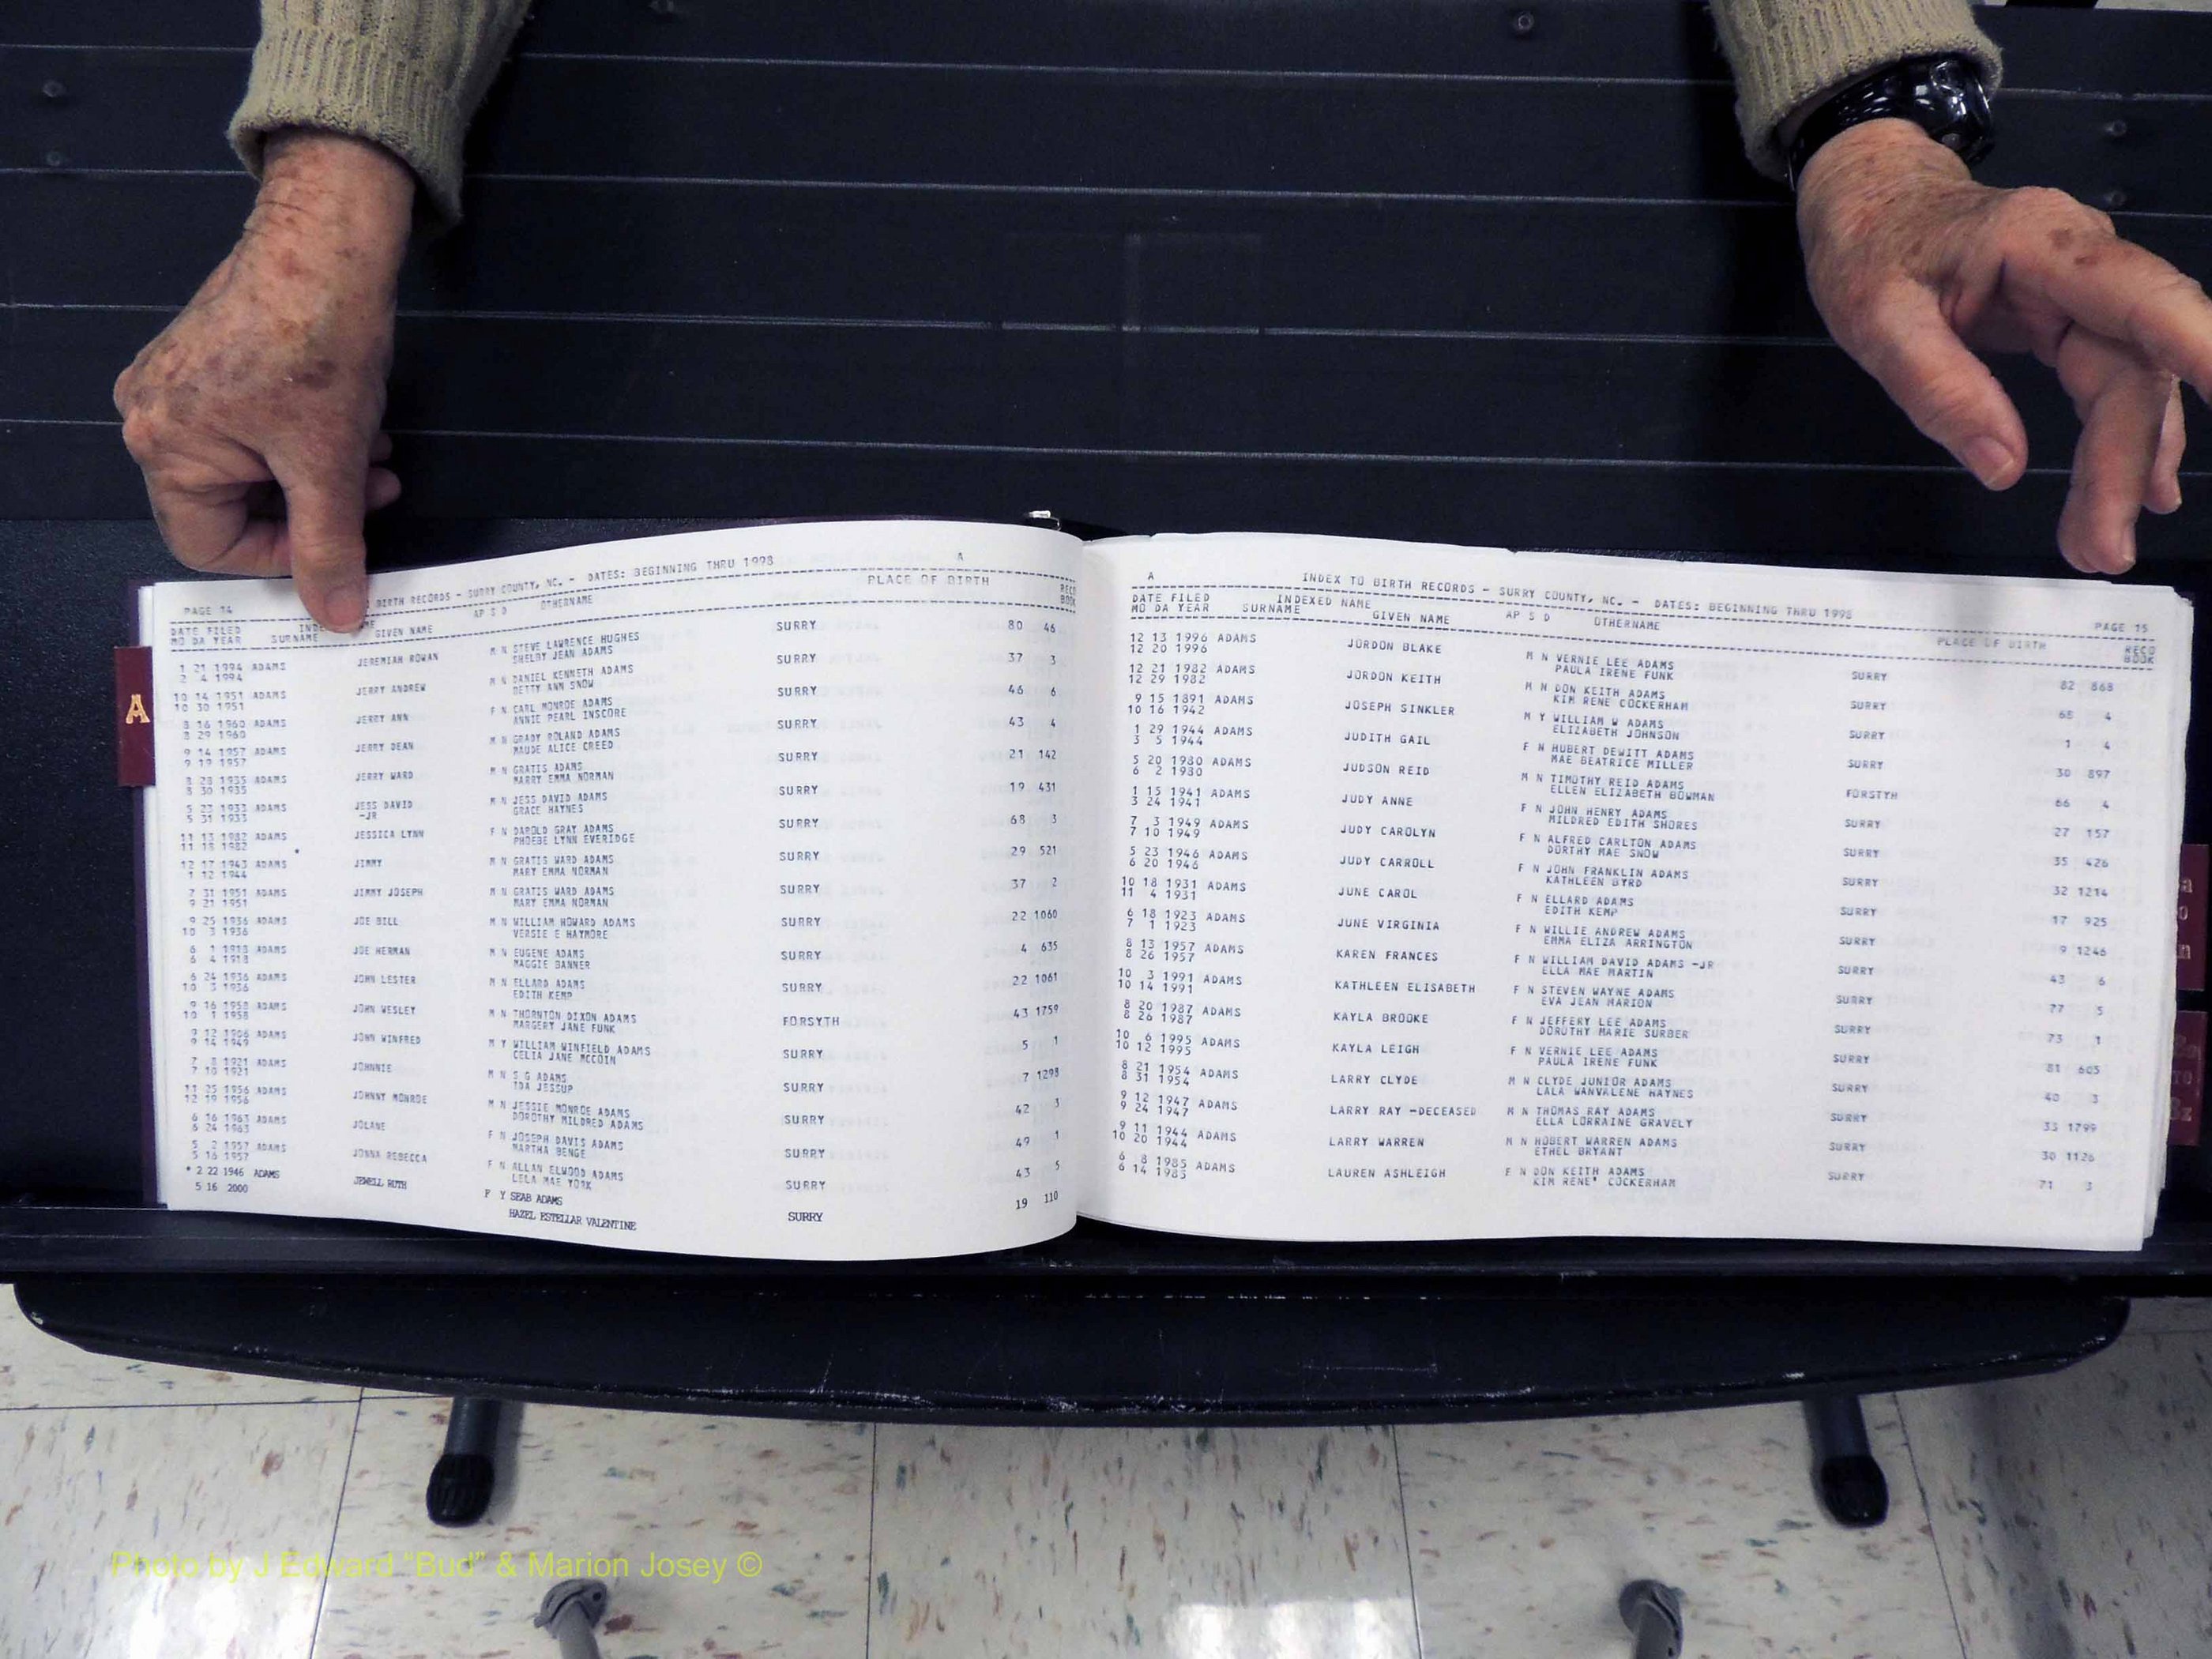 PAGE 14 BIRTH RECORDS - SURRY COUNTY, NC. - DATES: BEGINNING THRU 1998 A
DATE FILED PLACE OF BIRTH RECO
MO DA YEAR SURNAME GIVEN NAME AP S D OTHERNAME BOOK
1 21 1994 ADAMS JEREMIAH ROWAN M N STEVE LAWRENCE HUGHES SURRY 80 46
2 4 1994 SHELBY JEAN ADAMS
10 14 1951 ADAMS JERRY ANDREW M N DANIEL KENNETH ADAMS SURRY 37 3
10 30 1951 BETTY ANN SNOW
8 16 1960 ADAMS JERRY ANN F N CARL MONROE ADAMS SURRY 46 6
8 29 1960 ANNIE PEARL INSCORE
9 14 1957 ADAMS JERRY DEAN M N GRADY ROLAND ADAMS SURRY 43 4
9 19 1957 MAUDE ALICE CREED
8 28 1935 ADAMS JERRY WARD M N GRATIS ADAMS SURRY 21 142
8 30 1935 MARRY EMMA NORMAN
5 23 1933 ADAMS JESS DAVID M N JESS DAVID ADAMS SURRY 19 431
5 31 1933 -JR GRACE HAYNES
11 13 1982 ADAMS JESSICA LYNN F N DAROLD GRAY ADAMS SURRY 68 3
11 18 1982 PHOEBE LYNN EVERIDGE
12 17 1943 ADAMS JIMMY M N GRATIS WARD ADAMS SURRY 29 521
1 12 1944 MARY EMMA NORMAN
7 31 1951 ADAMS JIMMY JOSEPH M N GRATIS WARD ADAMS SURRY 37 2
9 21 1951 MARY EMMA NORMAN
9 25 1936 ADAMS JOE BILL M N WILLIAM HOWARD ADAMS SURRY 22 1060
10 3 1936 VERGIE E HAYMORE
6 1 1918 ADAMS JOE HERMAN M N EUGENE ADAMS SURRY 4 635
6 4 1918 MAGGIE BANNER
6 24 1936 ADAMS JOHN LESTER M N ELLARD ADAMS SURRY 22 1061
10 3 1936 EDITH KEMP
9 16 1958 ADAMS JOHN WESLEY M N THORNTON DIXON ADAMS FORSYTH 43 1759
10 1 1958 MARGERY JANE FUNK
9 12 1906 ADAMS JOHN WINFRED M Y WILLIAM WINFIELD ADAMS SURRY 5 1
9 14 1949 CELIA JANE MCCOIN
7 8 1921 ADAMS JOHNNIE M N S G ADAMS SURRY 7 1298
7 10 1921 IDA JESSUP
11 25 1956 ADAMS JOHNNY MONROE M N JESSIE MONROE ADAMS SURRY 42 3
12 19 1956 DOROTHY MILDRED ADAMS
6 16 1963 ADAMS JOLANE F N JOSEPH DAVIS ADAMS SURRY 49 1
6 24 1963 MARTHA BENGE
5 2 1957 ADAMS JONNA REBECCA F N ALLAN ELWOOD ADAMS SURRY 43 5
5 16 1957 LELA MAE YORK
* 2 22 1946 ADAMS JEWELL RUTH F Y SEAB ADAMS SURRY 19 110
5 16 2000 HAZEL ESTELLAR VALENTINE
A
A INDEX TO BIRTH RECORDS - SURRY COUNTY, NC. - DATES: BEGINNING THRU 1998 PAGE 15
DATE FILED INDEXED NAME PLACE OF BIRTH RECO
MO DA YEAR SURNAME GIVEN NAME AP S D OTHERNAME BOOK
12 13 1996 ADAMS JORDON BLAKE M N VERNIE LEE ADAMS SURRY 82 668
12 20 1996 PAULA IRENE FUNK
12 21 1982 ADAMS JORDON KEITH M N DON KEITH ADAMS SURRY 68 4
12 29 1982 KIM RENE COCKERHAM
9 15 1891 ADAMS JOSEPH SINKLER M Y WILLIAM W ADAMS SURRY 1 4
10 16 1942 ELIZABETH JOHNSON
1 29 1944 ADAMS JUDITH GAIL F N HUBERT DEWITT ADAMS SURRY 30 897
3 5 1944 MAE BEATRICE MILLER
5 20 1980 ADAMS JUDSON REID M N TIMOTHY REID ADAMS FORSTYH 66 4
6 2 1980 ELLEN ELIZABETH BOWMAN
1 15 1941 ADAMS JUDY ANNE F N JOHN HENRY ADAMS SURRY 27 157
3 24 1941 MILDRED EDITH SHORES
7 3 1949 ADAMS JUDY CAROLYN F N ALFRED CARLTON ADAMS SURRY 35 426
7 10 1949 DORTHY MAE SNOW
5 23 1946 ADAMS JUDY CARROLL F N JOHN FRANKLIN ADAMS SURRY 32 1214
6 20 1946 KATHLEEN BYRD
10 18 1931 ADAMS JUNE CAROL F N ELLARD ADAMS SURRY 17 925
11 4 1931 EDITH KEMP
6 18 1923 ADAMS JUNE VIRGINIA F N WILLIE ANDREW ADAMS SURRY 9 1246
7 1 1923 EMMA ELIZA ARRINGTON
8 13 1957 ADAMS KAREN FRANCES F N WILLIAM DAVID ADAMS -JR SURRY 43 6
8 26 1957 ELLA MAE MARTIN
10 3 1991 ADAMS KATHLEEN ELISABETH F N STEVEN WAYNE ADAMS SURRY 77 5
10 14 1991 EVA JEAN MARION
8 20 1987 ADAMS KAYLA BROOKE F N JEFFERY LEE ADAMS SURRY 73 1
8 26 1987 DOROTHY MARIE SURBER
10 6 1995 ADAMS KAYLA LEIGH F N VERNIE LEE ADAMS SURRY 81 605
10 12 1995 PAULA IRENE FUNK
8 21 1954 ADAMS LARRY CLYDE M N CLYDE JUNIOR ADAMS SURRY 40 3
8 31 1954 LALA WANVALENE HAYNES
9 12 1947 ADAMS LARRY RAY -DECEASED M N THOMAS RAY ADAMS SURRY 33 1799
9 24 1947 ELLA LORRAINE GRAVELY
9 11 1944 ADAMS LARRY WARREN M N HOBERT WARREN ADAMS SURRY 30 1126
10 20 1944 ETHEL BRYANT
6 8 1985 ADAMS LAUREN ASHLEIGH F N DON KEITH ADAMS SURRY 71 3
6 14 1985 KIM RENE' COCKERHAM
Photo by J Edward "Bud" & Marion Josey ©